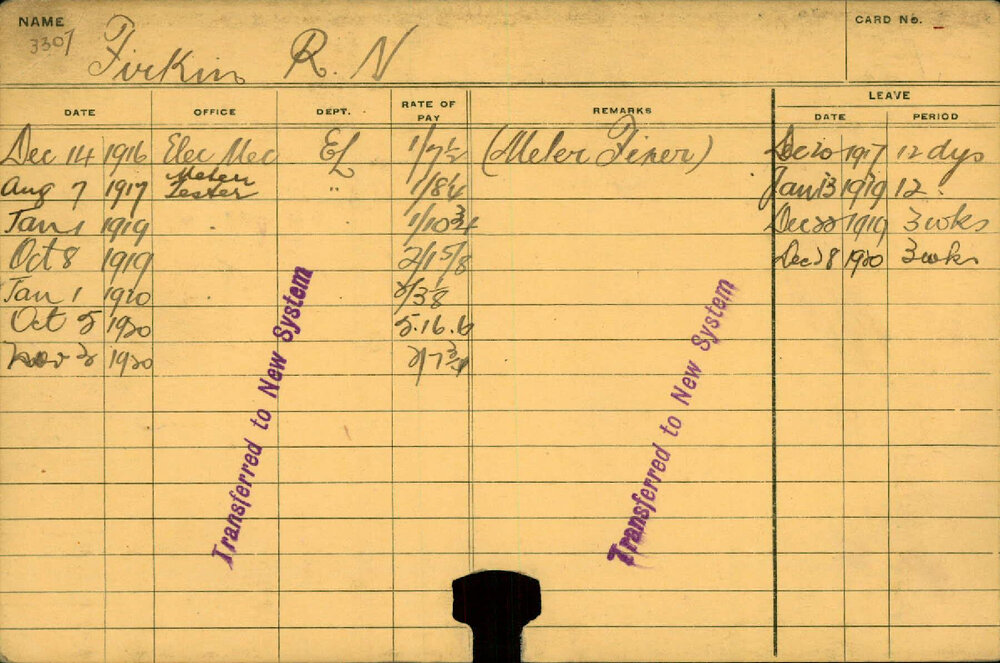 NAME
CARD No.
3307
Firkin R. N
LEAVE
DATE OFFICE DEPT. RATE OF PAY REMARKS DATE PERIOD
Dec 14 1916 Elec Mec EL 1/7½ (Meter Fixer) Dec 20 1917 12 dys
Aug 7 1917 Meter Tester " 1/8¼ Jan 13 1919 12
Jan 1 1919 1/10¾ Dec 22 1919 3 wks
Oct 8 1919 2/1 5/8 Dec 28 1920 3 wks
Jan 1 1920 2/3 1/8
Oct 5 1920 5.16.6
Nov 2 1920 2/7¾
Transferred to New System
Transferred to New System